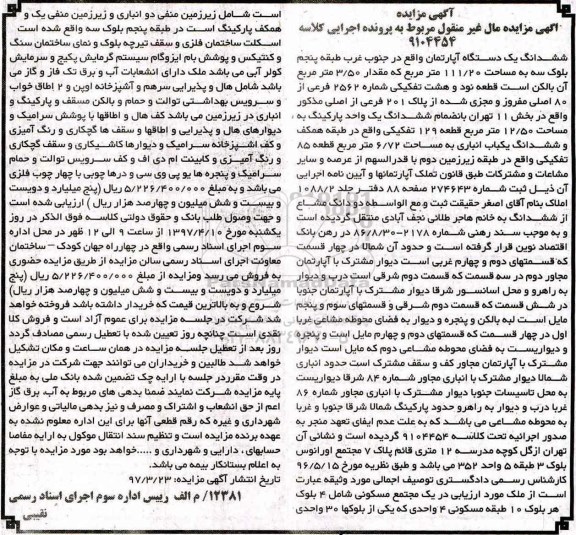 آگهی مزایده
آگهی مزایده مال غیر منقول مربوط به پرونده اجرایی کلاسه
۹۱۰۴۴۵۴
ششدانگ یک دستگاه آپارتمان واقع در جنوب غرب طبقه پنجم
بلوک سه به مساحت ۱۱۱/۲۰ متر مربع که مقدار ۳/۵۰ متر مربع
آن بالکن است قطعه نود و هشت تفکیکی شماره ۲۵۶۲ فرعی از
۸۰ اصلی مفروز و مجزی شده از پلاک ۲۰۱ فرعی از اصلی مذکور
واقع در بخش ۱۱ تهران بانضمام ششدانگ یک واحد پارکینگ به
مساحت ۱۲/۵۰ متر مربع قطعه ۱۲۹ تفکیکی واقع در طبقه همکف
و ششدانگ یکباب انباری به مساحت ۶/۷۲ متر مربع قطعه ۸۵
تفکیکی واقع در طبقه زیرزمین دوم با قدرالسهم از عرصه و سایر
مشاعات و مشترکات طبق قانون تملک آپارتمانها و آیین نامه اجرایی
آن ذیل ثبت شماره ۲۷۴۶۴۳ صفحه ۸۸ دفتر جلد ۸۸/۲
املاک بنام آقای اصغر حقیقت ثبت و مع الواسطه دو دانگ مشاع
از ششدانگ به خانم هاجر طلائی نجف آبادی منتقل گردیده است
و به موجب سند رهنی شماره ۲۱۷۸-۸۶/۸/۳۰ در رهن بانک
اقتصاد نوین قرار گرفته است و حدود آن شمالا در چهار قسمت
که قسمتهای دوم و چهارم غربی است دیوار مشترک با آپارتمان
مجاور دوم در سه قسمت که قسمت دوم شرقی است درب و دیوار
به راهرو و محل آسانسور شرقا دیوار مشترک با آپارتمان جنوبا
در شش قسمت که قسمت دوم شرقی و قسمتهای سوم و پنجم
مایل است لبه بالکن و پنجره و دیوار به فضای محوطه مشاعی غربا
اول در چهار قسمت که قسمتهای دوم و چهارم مایل است و پنجره
و دیواریست به فضای محوطه مشاعی دوم که مایل است دیوار
مشترک با آپارتمان مجاور کف و سقف مشترک است حدود انباری
شمالا دیوار مشترک با انباری مجاور شماره ۸۴ شرقا دیواریست
به محل تاسیسات جنوبا دیوار مشترک با انباری مجاور شماره ۸۶
غربا درب و دیوار به راهرو حدود پارکینگ شمالا شرقا جنوبا و غربا
به محوطه مشاعی می باشد که به علت عدم ایفای تعهد منجر به
صدور اجرائیه تحت کلاسه ۹۱۰۴۴۵۴ گردیده است و نشانی آن
تهران ازگل کوچه مدرسه ۱۲ متری قائم پلاک ۷ مجتمع اورانوس
بلوک ۳ طبقه ۵ واحد ۳۵۲ می باشد و طبق نظریه مورخ ۹۶/۵/۱۵
کارشناس رسمی دادگستری توصیف اجمالی مورد وثیقه عبارت
است از ملک مورد ارزیابی در یک مجتمع مسکونی شامل ۴ بلوک
هر بلوک ۱۰ طبقه مسکونی ۴ واحدی که یکی از بلوکها ۳۰ واحدی
است شامل زیرزمین منفی دو انباری و زیرزمین منفی یک و
همکف پارکینگ است در طبقه پنجم بلوک سه واقع شده است
اسکلت ساختمان فلزی و سقف تیرچه بلوک و نمای ساختمان سنگ
و کنتیکس و پوشش بام ایزوگام سیستم گرمایش پکیج و سرمایش
کولر آبی می باشد ملک دارای انشعابات آب و برق تک فاز و گاز می
باشد شامل هال و پذیرایی سرهم و آشپزخانه اوپن و ۲ اطاق خواب
و سرویس بهداشتی توالت و حمام و بالکن مسقف و پارکینگ و
انباری در زیرزمین می باشد کف هال و اطاقها با پوشش سرامیک و
دیوارهای هال و پذیرایی و اطاقها و سقف ها گچکاری و رنگ آمیزی
و کف آشپزخانه سرامیک و دیوارها کاشیکاری و سقف گچکاری
و رنگ آمیزی و کابینت ام دی اف و کف سرویس توالت و حمام
سرامیک و پنجره ها یو پی وی سی و درها چوبی با چهار چوب فلزی
می باشد و به مبلغ ۵/۲۲۶/۴۰۰/۰۰۰ ریال (پنج میلیارد و دویست
و بیست و شش میلیون و چهارصد هزار ریال ) ارزیابی شده است
و جهت وصول طلب بانک و حقوق دولتی کلاسه فوق الذکر در روز
یکشنبه مورخ ۱۳۹۷/۴/۱۰ از ساعت ۹ الی ۱۲ ظهر در محل اداره
سوم اجرای اسناد رسمی واقع در چهارراه جهان کودک – ساختمان
معاونت اجرای اسناد رسمی سالن مزایده از طریق مزایده حضوری
به فروش می رسد ومزایده از مبلغ ۵/۲۲۶/۴۰۰/۰۰۰ ریال (پنج
میلیارد و دویست و بیست و شش میلیون و چهارصد هزار ریال)
شروع و به بالاترین قیمت که خریدار داشته باشد فروخته خواهد
شد شرکت در جلسه مزایده برای عموم آزاد است و فروش کلا
نقدی است چنانچه روز تعیین شده با تعطیل رسمی مصادف گردد
روز بعد از تعطیل جلسه مزایده در همان ساعت و مکان تشکیل
خواهد شد طالبین و خریداران می توانند جهت شرکت در مزایده
در وقت مقرردر جلسه با ارایه چک تضمین شده بانک ملی به مبلغ
پایه مزایده شرکت نمایند ضمنا بدهی های مربوط به آب، برق گاز
اعم از حق انشعاب و اشتراک و مصرف و نیز بدهی مالیاتی و عوارض
شهرداری و غیره که رقم قطعی آنها برای این اداره معلوم نشده به
عهده برنده مزایده است و تنظیم سند انتقال موکول به ارایه مفاصا
حسابهای ، دارایی و شهرداری و .....خواهد بود مورد مزایده با توجه
به اعلام بستانکار بیمه می باشد.
تاریخ انتشار آگهی مزایده: ۹۷/۳/۲۳
۱۲۳۸۱/ م الف رییس اداره سوم اجرای اسناد رسمی
نقیبی